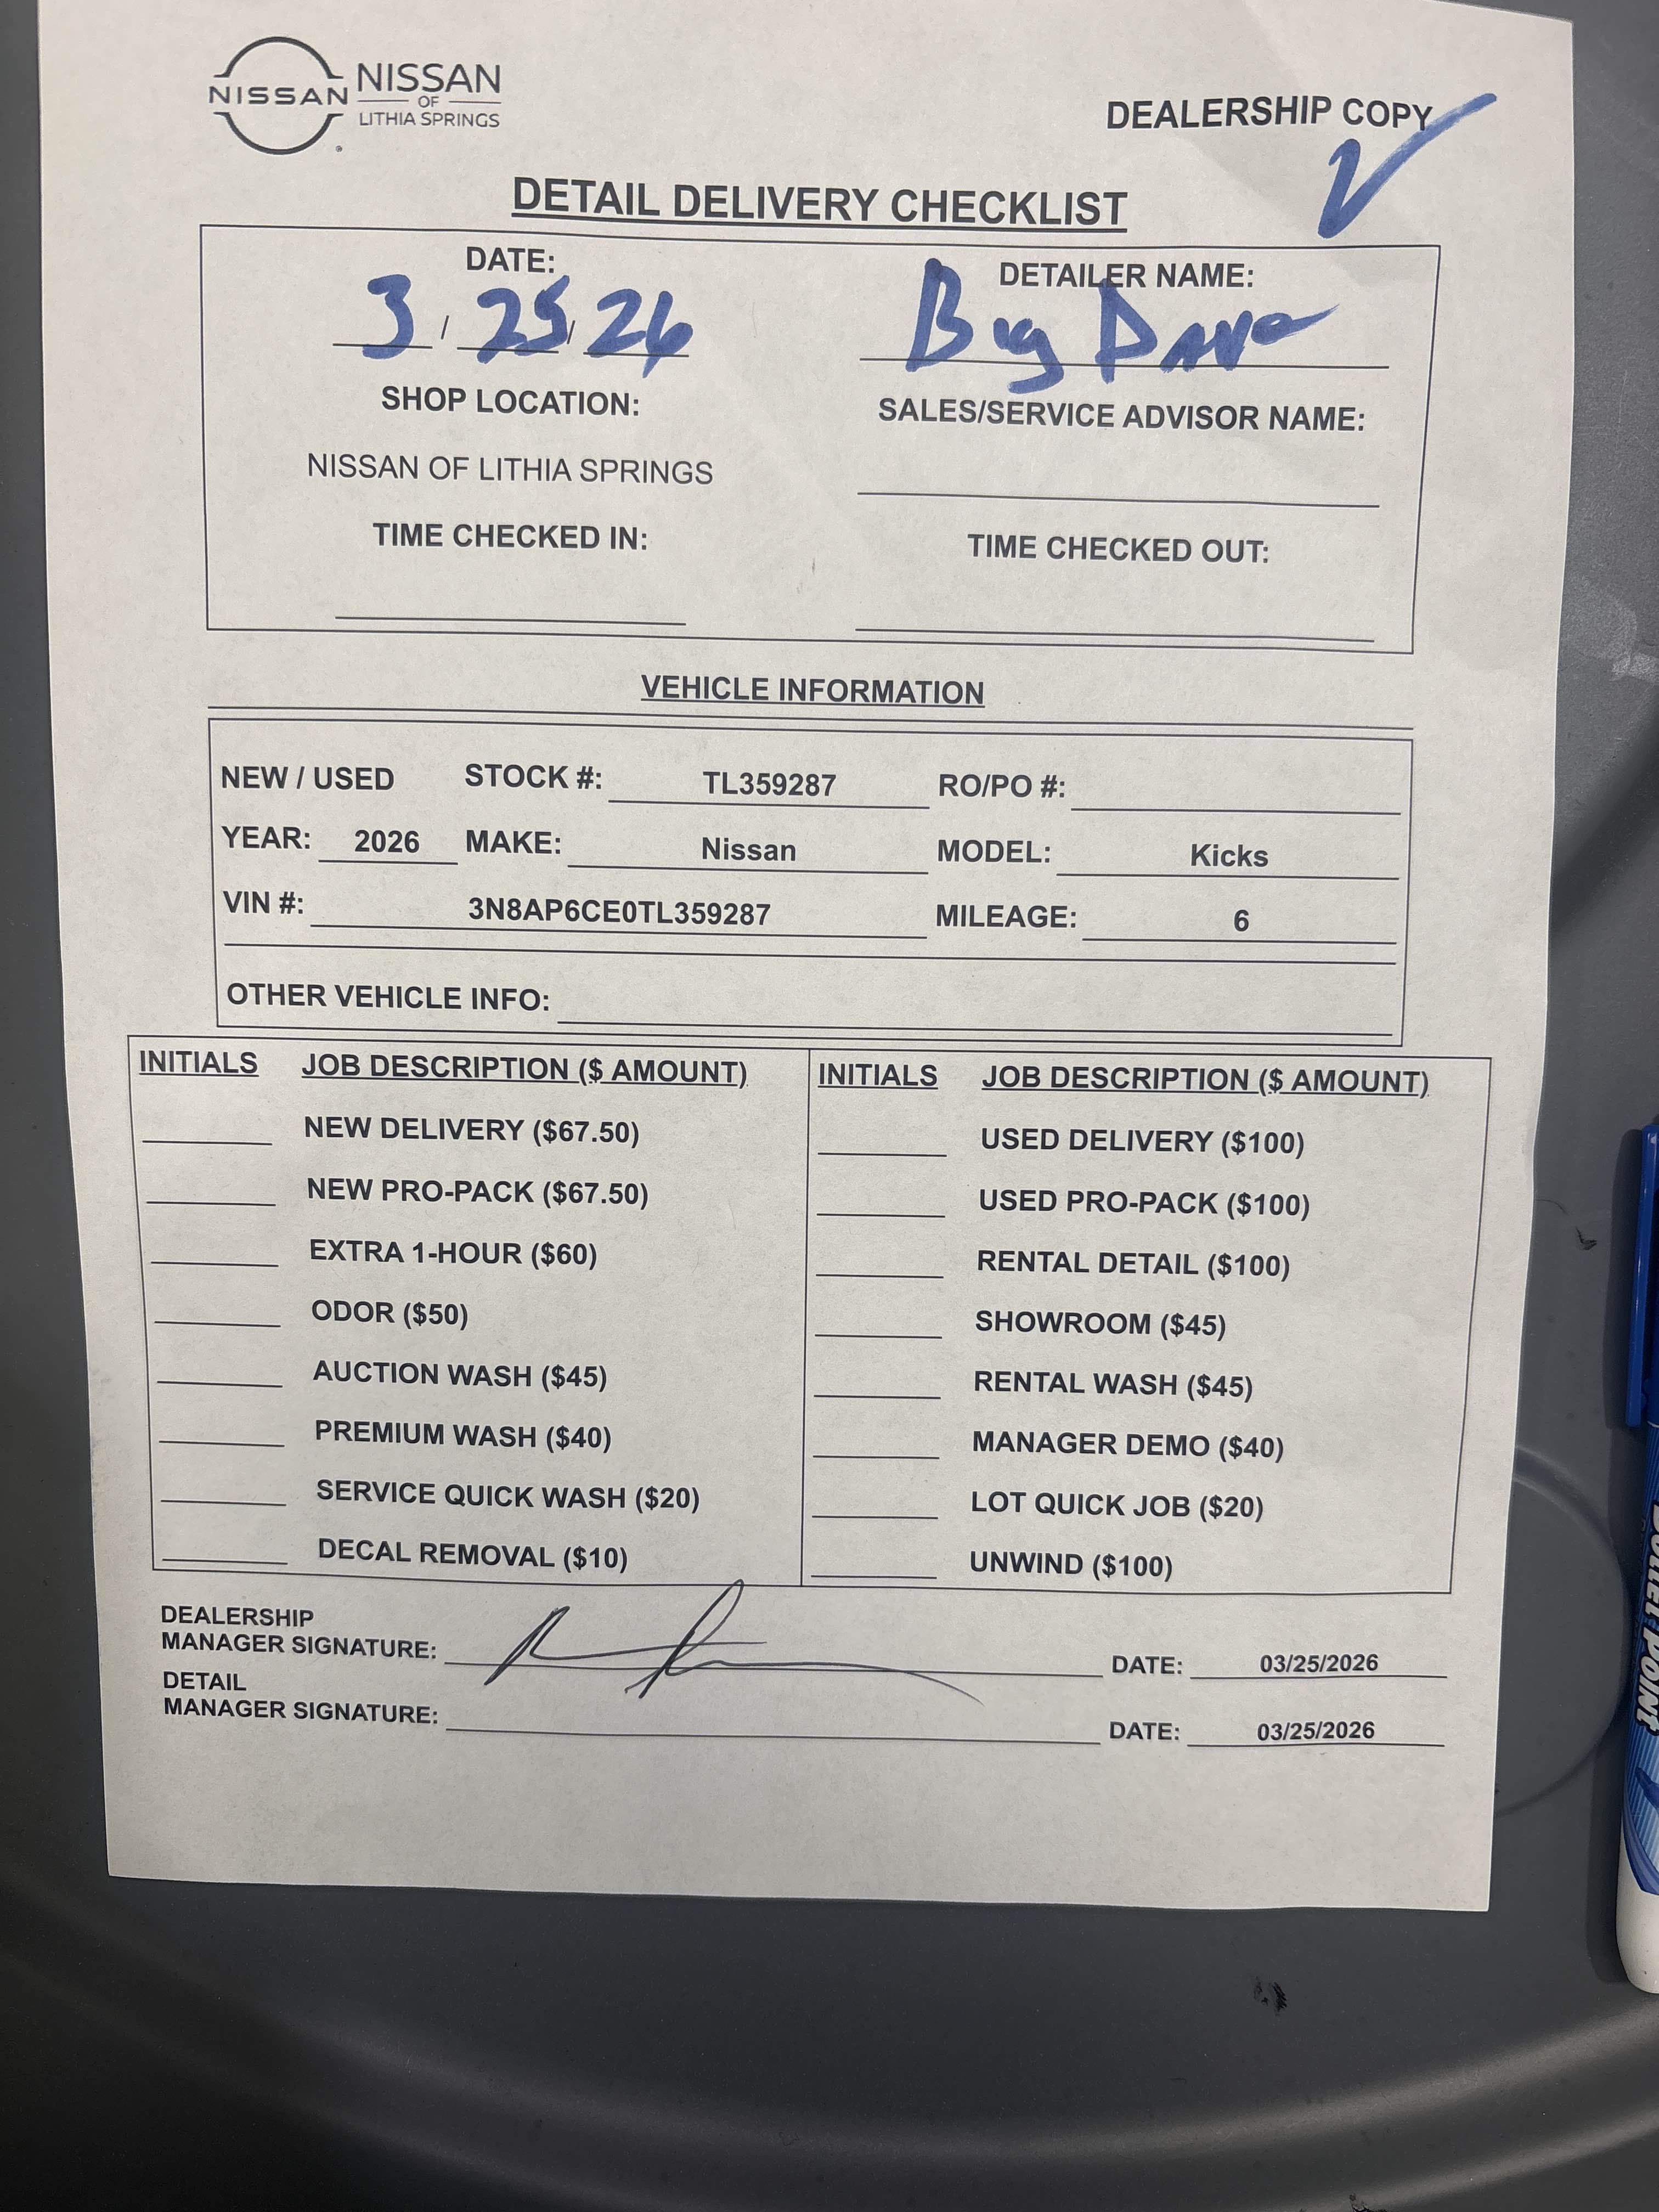 NISSAN
NISSAN
OF
LITHIA SPRINGS
DEALERSHIP COPY
DETAIL DELIVERY CHECKLIST
DATE:
3 / 25 / 26
DETAILER NAME:
Big Dave
SHOP LOCATION:
NISSAN OF LITHIA SPRINGS
SALES/SERVICE ADVISOR NAME:
TIME CHECKED IN:
TIME CHECKED OUT:
VEHICLE INFORMATION
NEW / USED STOCK #: TL359287 RO/PO #:
YEAR: 2026 MAKE: Nissan MODEL: Kicks
VIN #: 3N8AP6CE0TL359287 MILEAGE: 6
OTHER VEHICLE INFO:
INITIALS JOB DESCRIPTION ($ AMOUNT)
NEW DELIVERY ($67.50)
NEW PRO-PACK ($67.50)
EXTRA 1-HOUR ($60)
ODOR ($50)
AUCTION WASH ($45)
PREMIUM WASH ($40)
SERVICE QUICK WASH ($20)
DECAL REMOVAL ($10)
INITIALS JOB DESCRIPTION ($ AMOUNT)
USED DELIVERY ($100)
USED PRO-PACK ($100)
RENTAL DETAIL ($100)
SHOWROOM ($45)
RENTAL WASH ($45)
MANAGER DEMO ($40)
LOT QUICK JOB ($20)
UNWIND ($100)
DEALERSHIP
MANAGER SIGNATURE: DATE: 03/25/2026
DETAIL
MANAGER SIGNATURE: DATE: 03/25/2026
POINT